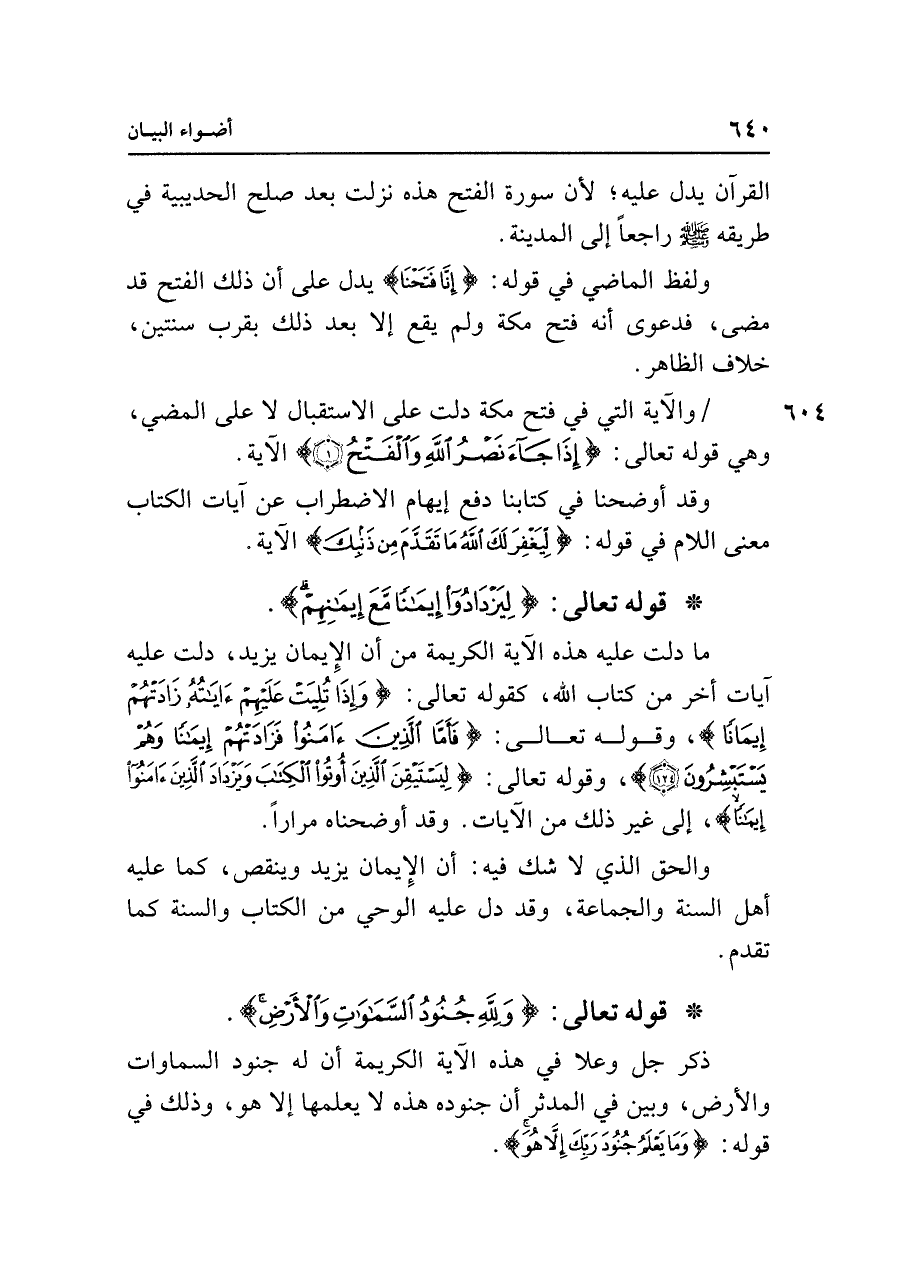 ٦٤٠ أضـواء البيـان
القرآن يدل عليه؛ لأن سورة الفتح هذه نزلت بعد صلح الحديبية في
طريقه ﷺ راجعاً إلى المدينة.
ولفظ الماضي في قوله: ﴿إِنَّا فَتَحْنَا﴾ يدل على أن ذلك الفتح قد
مضى، فدعوى أنه فتح مكة ولم يقع إلا بعد ذلك بقرب سنتين،
خلاف الظاهر.
٦٠٤ / والآية التي في فتح مكة دلت على الاستقبال لا على المضي،
وهي قوله تعالى: ﴿إِذَا جَآءَ نَصْرُ ٱللَّهِ وَٱلْفَتْحُ ١﴾ الآية.
وقد أوضحنا في كتابنا دفع إيهام الاضطراب عن آيات الكتاب
معنى اللام في قوله: ﴿لِّيَغْفِرَ لَكَ ٱللَّهُ مَا تَقَدَّمَ مِن ذَنۢبِكَ﴾ الآية.
* قوله تعالى: ﴿لِيَزْدَادُوٓا۟ إِيمَٰنًا مَّعَ إِيمَٰنِهِمْ ۗ﴾.
ما دلت عليه هذه الآية الكريمة من أن الإيمان يزيد، دلت عليه
آيات أخر من كتاب الله، كقوله تعالى: ﴿وَإِذَا تُلِيَتْ عَلَيْهِمْ ءَايَٰتُهُۥ زَادَتْهُمْ
إِيمَانًا﴾، وقـولـه تعـالـى: ﴿فَأَمَّا ٱلَّذِينَ ءَامَنُوا۟ فَزَادَتْهُمْ إِيمَٰنًا وَهُمْ
يَسْتَبْشِرُونَ ١٢٤﴾، وقوله تعالى: ﴿لِيَسْتَيْقِنَ ٱلَّذِينَ أُوتُوا۟ ٱلْكِتَٰبَ وَيَزْدَادَ ٱلَّذِينَ ءَامَنُوٓا۟
إِيمَٰنًا ۙ﴾، إلى غير ذلك من الآيات. وقد أوضحناه مراراً.
والحق الذي لا شك فيه: أن الإيمان يزيد وينقص، كما عليه
أهل السنة والجماعة، وقد دل عليه الوحي من الكتاب والسنة كما
تقدم.
* قوله تعالى: ﴿وَلِلَّهِ جُنُودُ ٱلسَّمَٰوَٰتِ وَٱلْأَرْضِ ۚ﴾.
ذكر جل وعلا في هذه الآية الكريمة أن له جنود السماوات
والأرض، وبين في المدثر أن جنوده هذه لا يعلمها إلا هو، وذلك في
قوله: ﴿وَمَا يَعْلَمُ جُنُودَ رَبِّكَ إِلَّا هُوَ ۚ﴾.